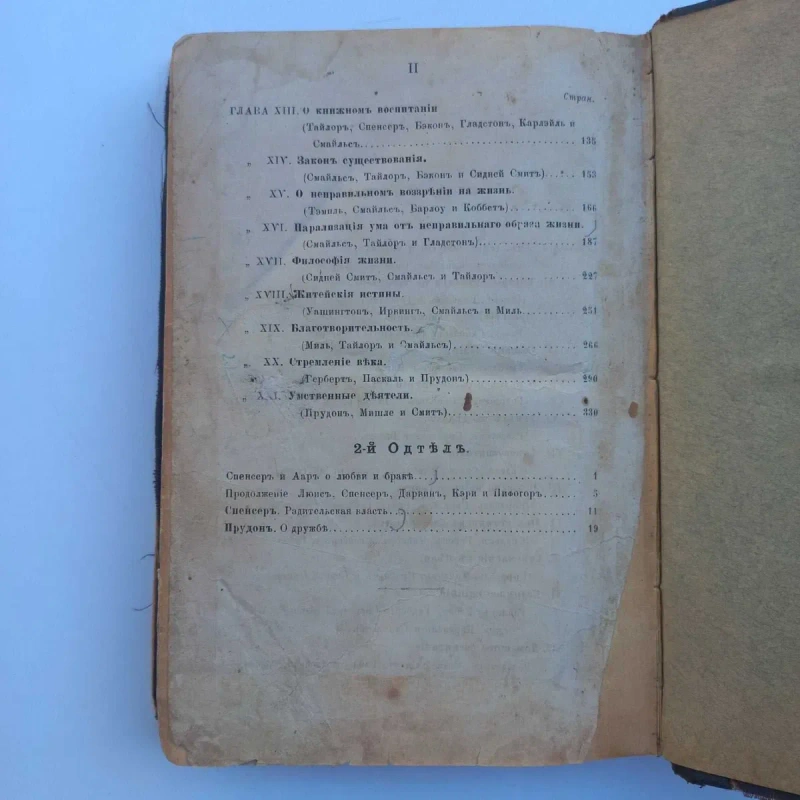 II
Стран.
ГЛАВА XIII. О книжномъ воспитаніи
(Тайлоръ, Спенсеръ, Бэконъ, Гладстонъ, Карлэйль и
Смайльсъ. 135
„ XIV. Законъ существованія.
(Смайльсъ, Тайлоръ, Бэконъ и Сидней Смитъ) 153
„ XV. О неправильномъ воззрѣніи на жизнь.
(Тэмпль, Смайльсъ, Барлоу и Коббетъ) 166
„ XVI. Парализація ума отъ неправильнаго образа жизни.
(Смайльсъ, Тайлоръ и Гладстонъ) 187
„ XVII. Философія жизни.
(Сидней Смитъ, Смайльсъ и Тайлоръ 227
„ XVIII. Житейскія истины.
(Уашингтонъ, Ирвингъ, Смайльсъ и Миль 251
„ XIX. Благотворительность.
(Миль, Тайлоръ и Смайльсъ) 266
„ XX. Стремленіе вѣка.
(Гербертъ, Паскаль и Прудонъ) 290
„ XXI. Умственные дѣятели.
(Прудонъ, Мишле и Смитъ) 330
2-й Одтѣлъ.
Спенсеръ и Ааръ о любви и бракѣ 1
Продолженіе Люисъ, Спенсеръ, Дарвинъ, Кэри и Пифогоръ 3
Спейсеръ. Радительская власть 11
Прудонъ. О дружбѣ 19